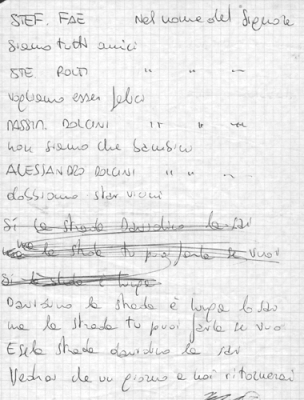 STEF. FAE Nel nome del Signore
siamo tutti amici
STE ROLTI " " "
vogliamo esser felici
MASSIM. DOLCINI " " "
non siamo che bambini
ALESSANDRO DOLCINI " " "
dobbiamo star vicini
Si la strada Davidino la sai
ma la strada tu puoi farla se vuoi
Si la strada è lunga
Davidino la strada è lunga lo sai
ma la strada tu puoi farla se vuoi
E se la strada davidino la sai
Vedrai che un giorno a noi ritornerai